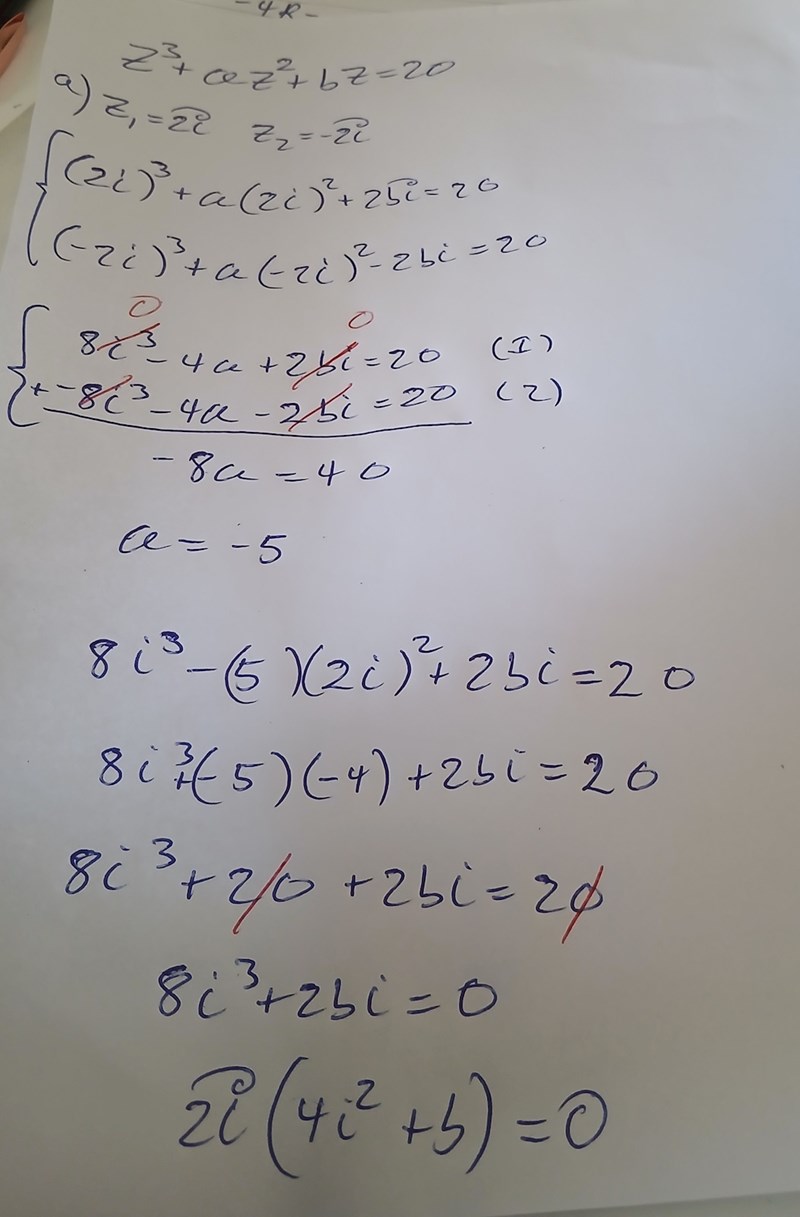 -4R-
z³+az²+bz=20
a) z₁=2i z₂=-2i
(2i)³+a(2i)²+2bi=20
(-2i)³+a(-2i)²-2bi=20
0 0
8i³-4a+2bi=20 (I)
+-8i³-4a-2bi=20 (2)
-8a=40
a=-5
8i³-(5)(2i)²+2bi=20
8i³+(-5)(-4)+2bi=20
8i³+20+2bi=20
8i³+2bi=0
2i(4i²+b)=0